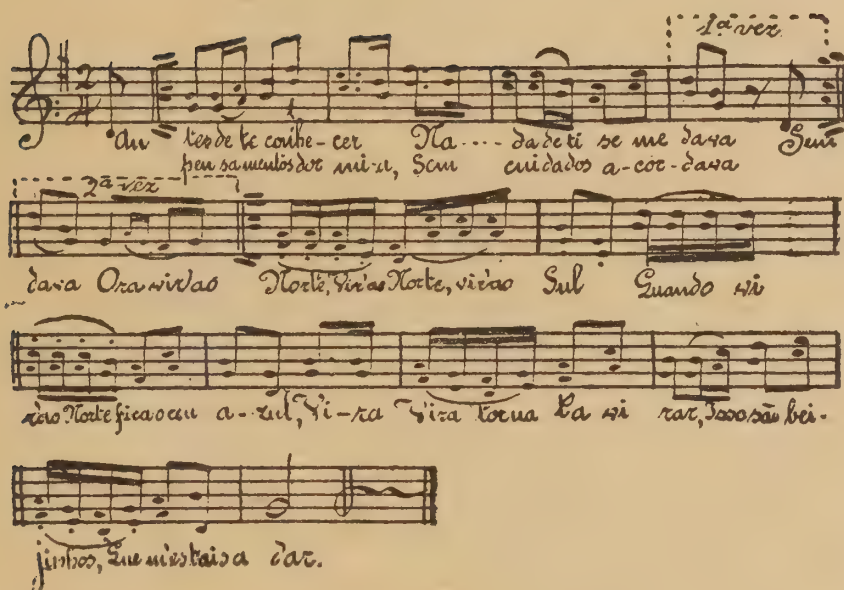 1ª vez
An tes de te conhe-cer Na---- da de ti se me dava Sem
pen samentos dor mi-a, Sem cuidados a-cor-dava
2ª vez
dava Ora vir'ao Norte, vir'ao Norte, vir'ao Sul Quando vi
r'ao Norte fica o ceu a-zul, Vi-ra Vira torna La vi rar, Isso são bei-
jinhos, Que m'estais a dar.